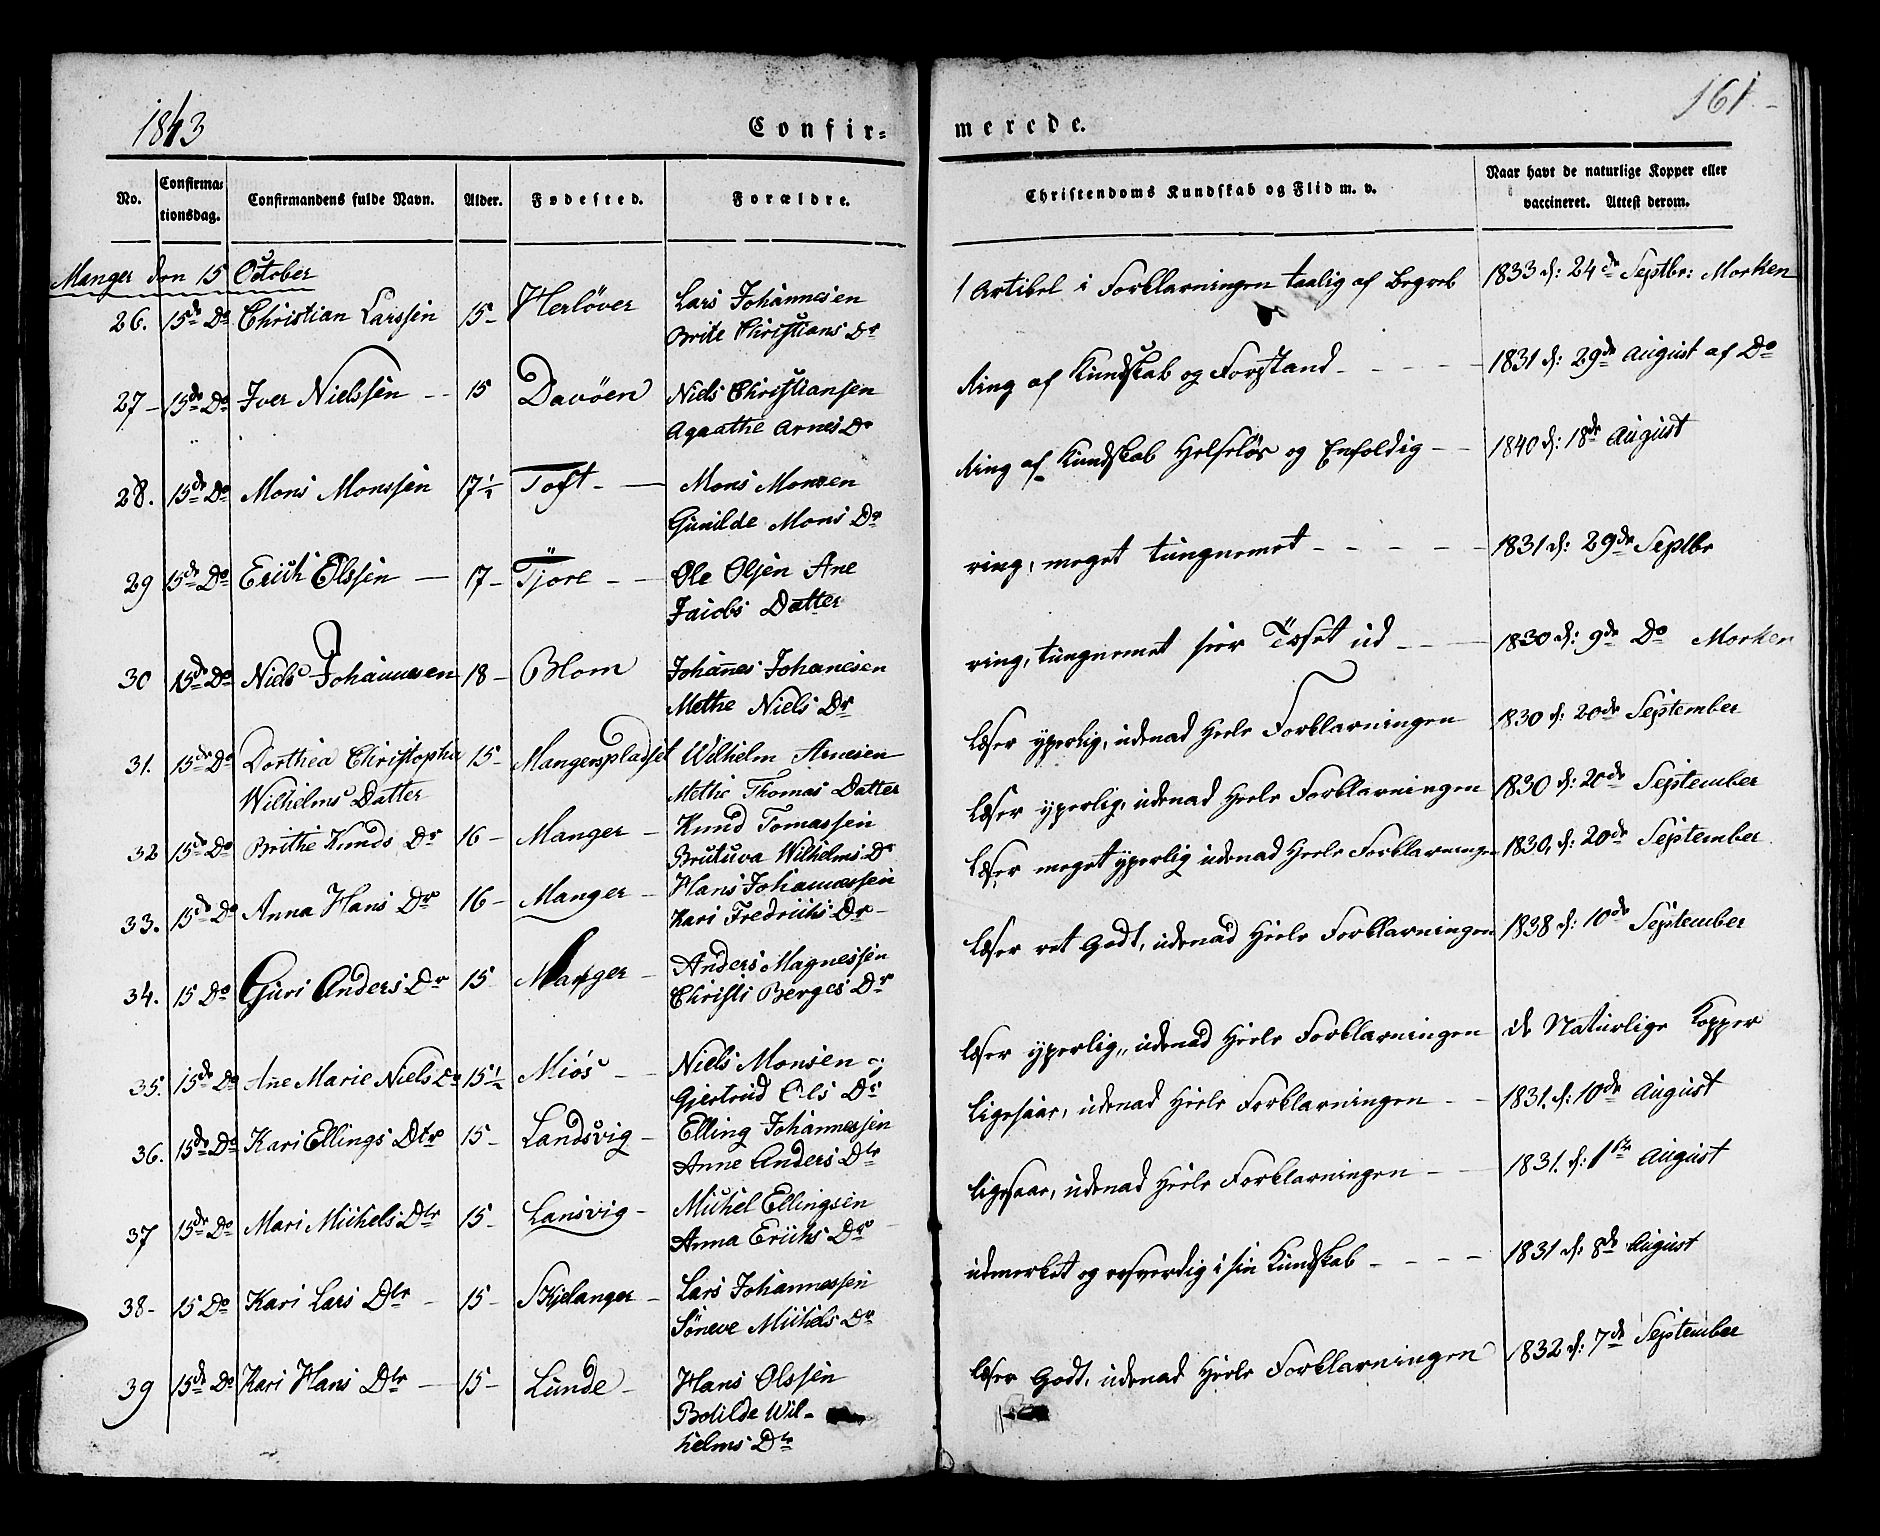 1843
Confir=
merede.
161
No.
Confirma=
tionsdag.
Confirmandens fulde Navn.
Alder.
Fødested.
Forældre.
Christendoms Kundskab og Flid m. v.
Naar havt de naturlige Kopper eller
vaccineret. Attest derom.
Manger den 15 October
26. 15de Do Christian Larssen 15 Herløver Lars Johannesen 1 Artikel i Forklarningen taalig af Begreb 1833 d: 24de Septbr: Morken
Brite Christians Dr
27 15de Do Iver Nielssen 15 Davøen Niels Christiansen Ring af Kundskab og Forstand 1831 d: 29de August af Do
Agaathe Arnes Dr
28. 15de Do Mons Monssen 17½ Toft Mons Monsen Ring af Kundskab Helseløs og Enfoldig 1840 d: 18de August
Gunilde Mons Dr
29 15de Do Erich Olssen 17 Tjore Ole Olsen Ane ring, meget tungnemet 1831 d: 29de Septbr
Jaicobs Datter
30 15de Do Niels Johannesen 18 Blom Johannes Johanesen ring, tungnemet 1830 d: 9de Do Morken
Methe Niels Dr
31. 15de Do Dorthea Christopha 15 Mangerspladset Wilhelm Arnesen læser yperlig, udenad Heele Forklarningen 1830 d: 20de September
Wilhelms Datter Methe Thomas Datter
32 15de Do Brithe Knuds Dr 16 Manger Knud Tomassen læser yperlig, udenad Heele Forklarningen 1830 d: 20de September
Brutuva Wilhelms Dr
33. 15de Do Anna Hans Dr 16 Manger Hans Johannessen læser meget yperlig udenad Heele Forklarningen 1830, d: 20de September
Kari Fredrichs Dr
34. 15 Do Guri Anders Dr 15 Manger Anders Magnessen læser ret Godt, udenad Heele Forklarningen 1838 d: 10de September
Christi Berges Dr
35. 15de Do Ane Marie Niels Dr 15½ Miøs Niels Monsen og læser yperlig, udenad Heele Forklarningen de Naturlige Kopper
Gjertrud Ols Dr
36. 15de Do Kari Ellings Dtr 15 Landsvig Elling Johannessen ligesaa, udenad Heele Forklarningen 1831. d: 10de August
Anne Anders Dtr
37 15de Do Mari Michels Dtr 15 Lansvig Michel Ellingsen ligesaa, udenad Heele Forklarningen 1831. d: 1ste August
Anna Erichs Dr
38 15 Do Kari Lars Dtr 15 Skjelanger Lars Johannessen udmerket og rosverdig i sin Kundskab 1831 d: 8de August
Søneve Michels Dr
39 15de Do Kari Hans Dtr 15 Lunde Hans Olssen læser Godt, udenad Heele Forklarningen 1832 d: 7de September
Botilde Wil-
helms Dtr